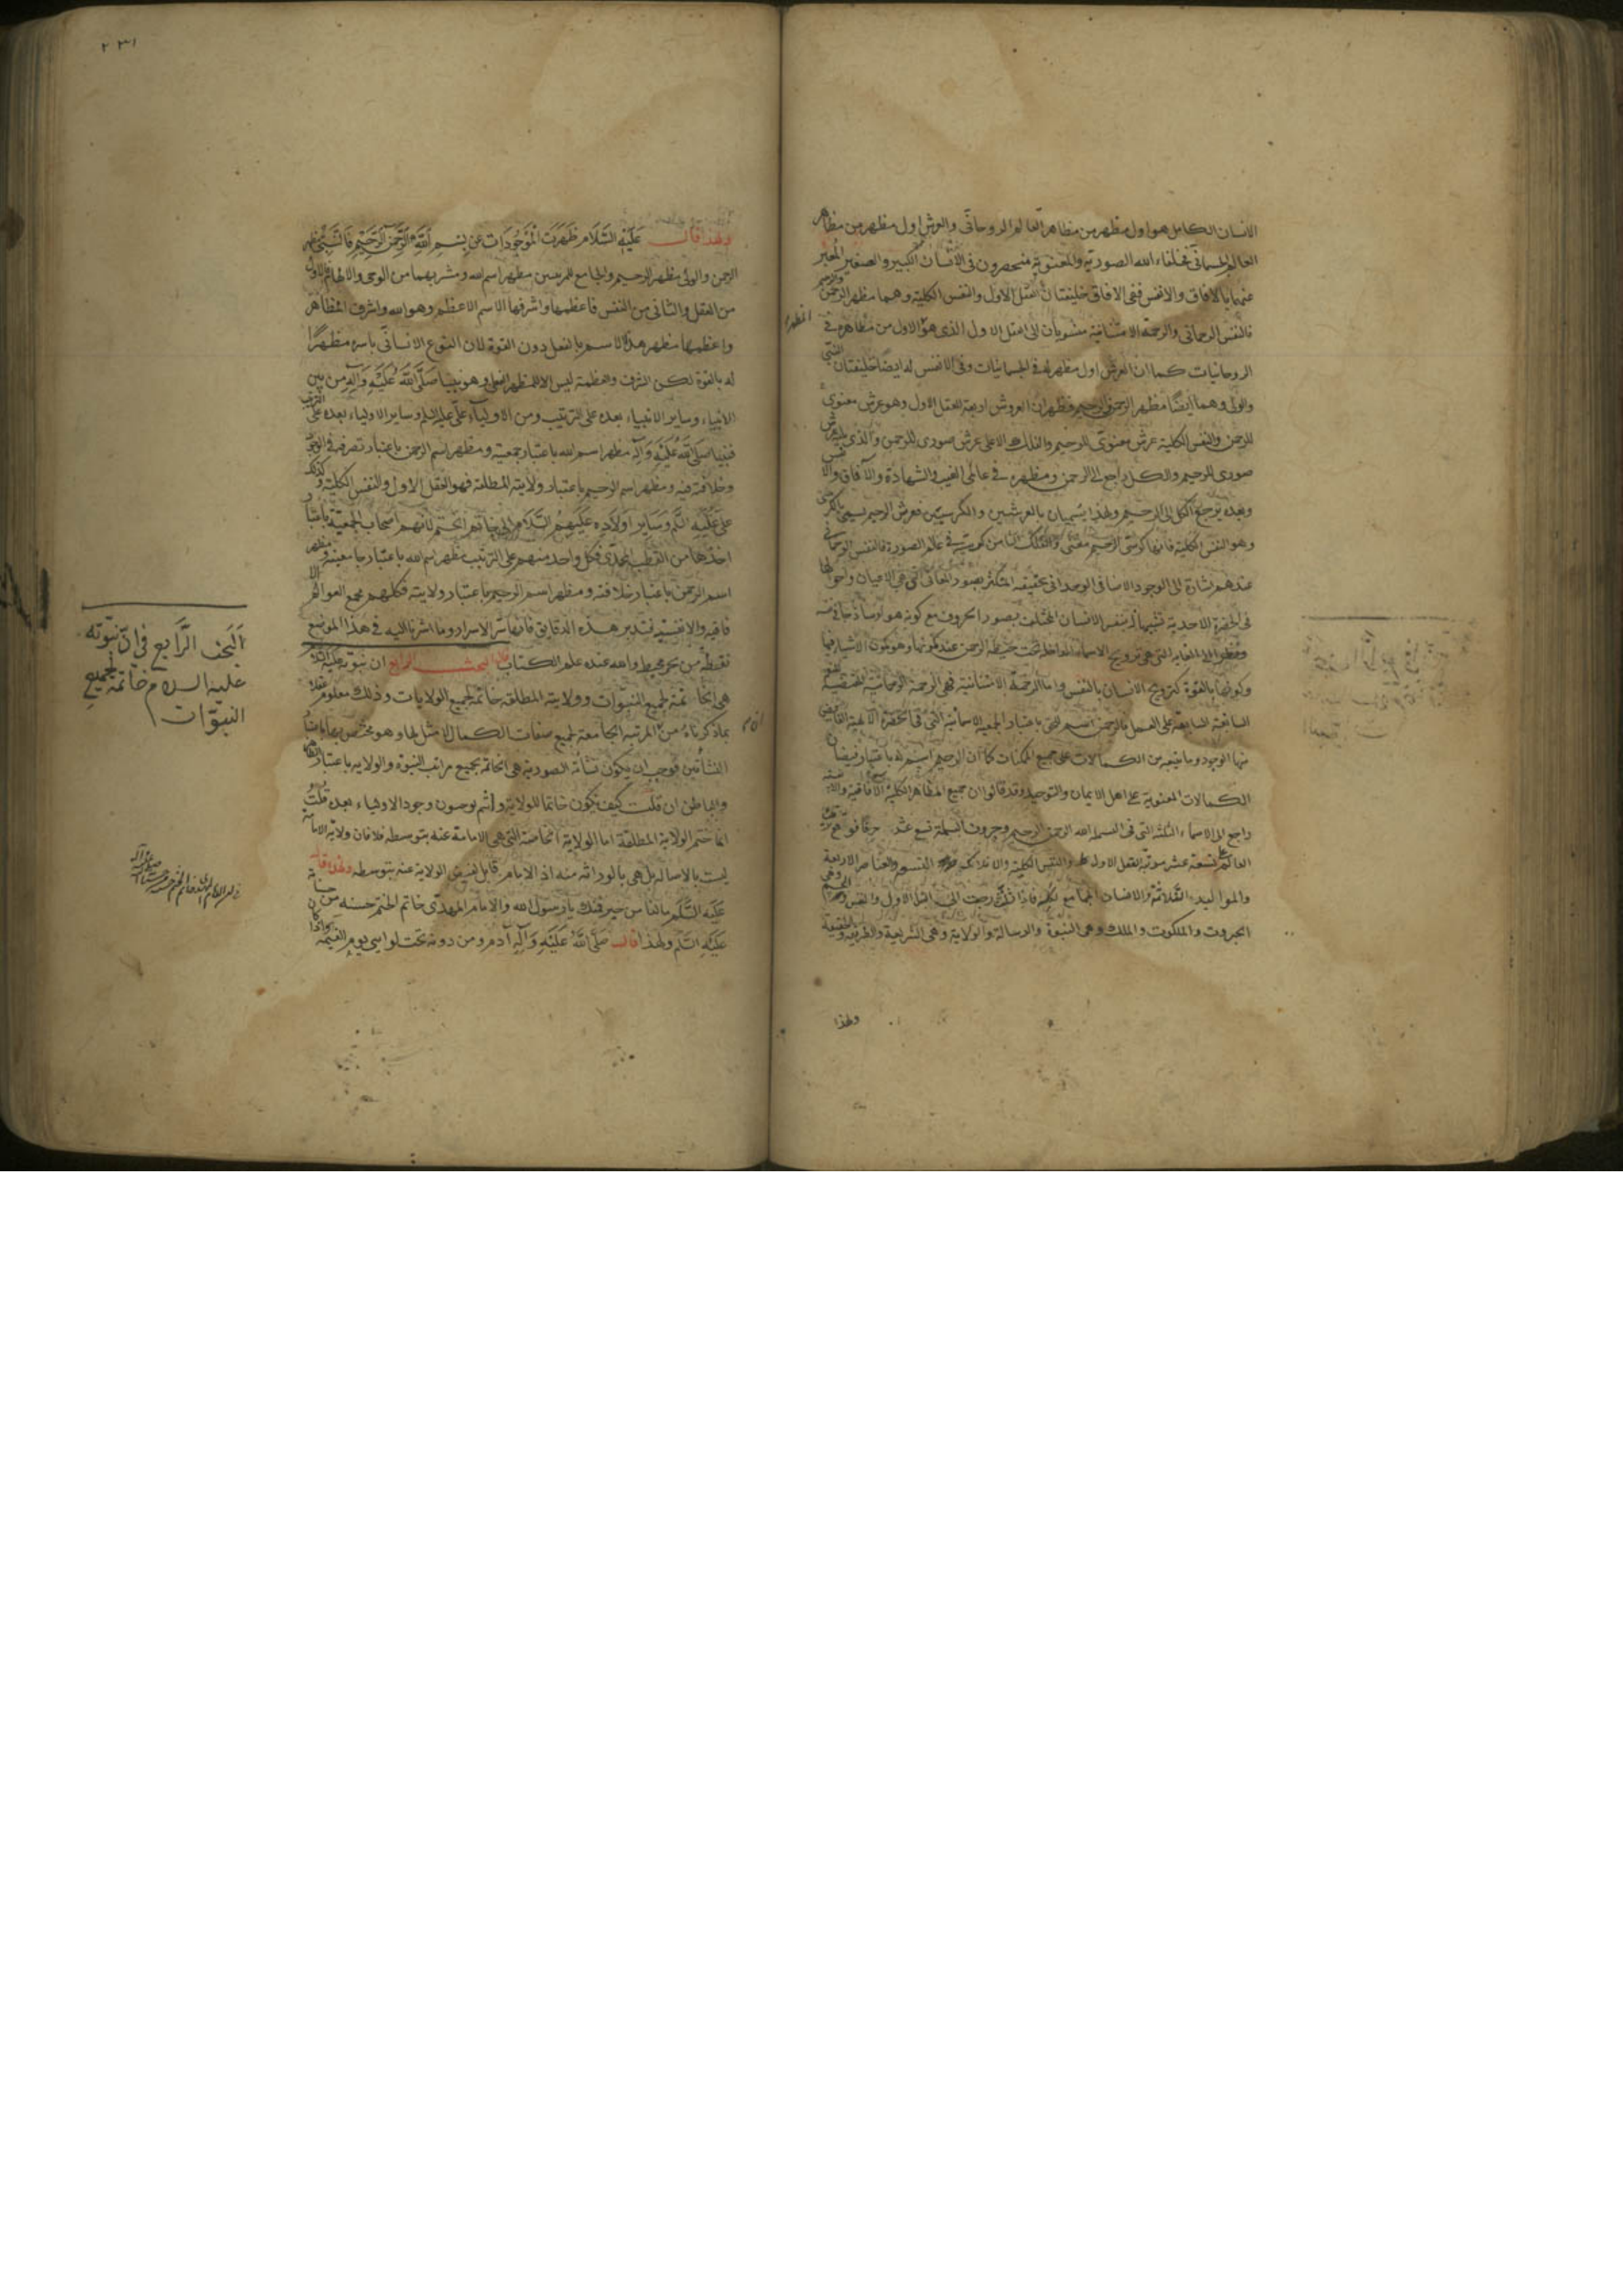 الانسان الكامل هو اول مظهر من مظاهر العالم الروحانى والعرش اول مظهر من مظاهر
العالم الجسمانى فخلفاء الله الصورية والمعنوية منحصرون فى الانسان الكبير والصغير المعبر
عنهما بالافاق والانفس ففى الافاق خليفتان العقل الاول والنفس الكلية وهما مظهر الرحمن والرحيم
فالنفس الرحمانى والرحمة الامتنانية منسوبان الى العقل الاول الذى هو الاول من مظاهره فى
الروحانيات كما ان العرش اول مظهر له فى الجسمانيات وفى الانفس له ايضا خليفتان النبى
والولى وهما ايضا مظهر الرحمن والرحيم فظهر ان العروش اربعة العقل الاول وهو عرش معنوى
للرحمن والنفس الكلية عرش معنوى للرحيم والفلك الاعلى عرش صورى للرحمن والذى يليه عرش
صورى للرحيم والكل راجع الى الرحمن ومظهره فى عالمى الغيب والشهادة والآفاق والانفس
وبعده يرجع الكل الى الرحيم ولهذا يسميان بالعرشين والكرسيين فعرش الرحيم يسمى بالكرسى
وهو النفس الكلية فانها كرسى الرحيم معنى والفلك الثامن كرسيه فى عالم الصورة فالنفس الرحمانى
عندهم اشارة الى الوجود الاضافى الوحدانى بحقيقته المتكثر بصور المعانى التى هى الاعيان واحوالها
فى الحضرة الاحدية تشبيها بنفس الانسان المختلف بصور الحروف مع كونه هواء ساذجا فى نفسه
ونظرا الى الغاية التى هى ترويح الاسماء الداخلة تحت حيطة الرحمن عند كونها وهو كون الاشياء فيها
وكونها بالقوة كترويح الانسان بالنفس واما الرحمة الامتنانية فهى الرحمة الرحمانية المقتضية للنعم
السابغة السابقة على العمل فالرحمن اسم للحق باعتبار الجمعية الاسمائية التى فى الحضرة الالهية الفايض
منها الوجود وما يتبعه من الكمالات على جميع الممكنات كما ان الرحيم اسم له باعتبار فيضان
الكمالات المعنوية على اهل الايمان والتوحيد وقد قالوا ان جميع المظاهر الكلية الآفاقية والانفسية
راجع الى الاسماء الثلثة التى فى البسملة الله الرحمن الرحيم وحروف البسملة تسع عشر حرفا فوقع ترتيب
العالم على تسعة عشر مرتبة العقل الاول والنفس الكلية والافلاك التسعة والعناصر الاربعة
والمواليد الثلاثة والانسان الجامع لكلها فاذا رجعت الى العقل الاول والنفس والجسم وهى
الجبروت والملكوت والملك وهى النبوة والرسالة والولاية وهى الشريعة والطريقة والحقيقة
ولهذا
٢٣١
ولهذا قال عليه السلام ظهرت الموجودات عن بسم الله الرحمن الرحيم فالنبى مظهر
الرحمن والولى مظهر الرحيم والجامع للمرتبتين مظهر اسم الله ومشربهما من الوحى والالهام فالاول
من العقل والثانى من النفس فاعظمها واشرفها الاسم الاعظم وهو الله واشرف المظاهر
واعظمها مظهر هذا الاسم بالفعل دون القوة لان النوع الانسانى باسره مظهرا
له بالقوة لكن الشرف والعظمة ليس الا للمظهر الفعلى وهو نبينا صلى الله عليه وآله من بين
الانبياء وساير الانبياء بعده على الترتيب ومن الاولياء على عليه السلم وساير الاولياء بعده على الترتيب
فنبينا صلى الله عليه وآله مظهر اسم الله باعتبار جمعيته ومظهر اسم الرحمن باعتبار تصرفه فى الوحى
وخلافته فيه ومظهر اسم الرحيم باعتبار ولايته المطلقة فهو العقل الاول والنفس الكلية وكذلك
على عليه السلم وساير اولاده عليهم السلام الى خاتمهم الختم لانهم اصحاب الجمعية باعتبار
اخذها من القطب المحمدى فكل واحد منهم على الترتيب مظهر اسم الله باعتبار جامعيته ومظهر
اسم الرحمن باعتبار خلافته ومظهر اسم الرحيم باعتبار ولايته فكلهم مجمع العوالم الا
فاقيه والانفسيه فتدبر هذه الدقايق فانها سر الاسرار وما اشرنا اليه فى هذا الموضع
نقطة من بحر محيط والله عنده علم الكتاب البحث الرابع ان نبوته عليه السلام
هى الخاتمة لجميع النبوات وولايته المطلقة خاتمة لجميع الولايات وذلك معلوم عقلا
بما ذكرناه من ان المرتبة الجامعة لجميع صفات الكمال لا مثل لها وهو مختص بها باعتبار
النشأتين فوجب ان يكون نشأته الصورية هى الخاتمة بجميع مراتب النبوة والولاية باعتبار الظاهر
والباطن ان قلت كيف يكون خاتما للولاية وانتم توجبون وجود الاولياء بعده قلت
انما ختم الولاية المطلقة اما الولاية الخاصة التى هى الامامة عنه بتوسطه فلا فان ولاية الامامة
ليست بالاصالة بل هى بالوراثة منه اذ الامام قابل لفيض الولاية عنه بتوسطه ولهذا قال
عليه السلم
عليه السلم ولهذا قال صلى الله عليه وآله آدم ومن دونه تحت لوائى يوم القيمة
البحث الرابع فى ان نبوته
عليه السلام خاتمة لجميع
النبوات